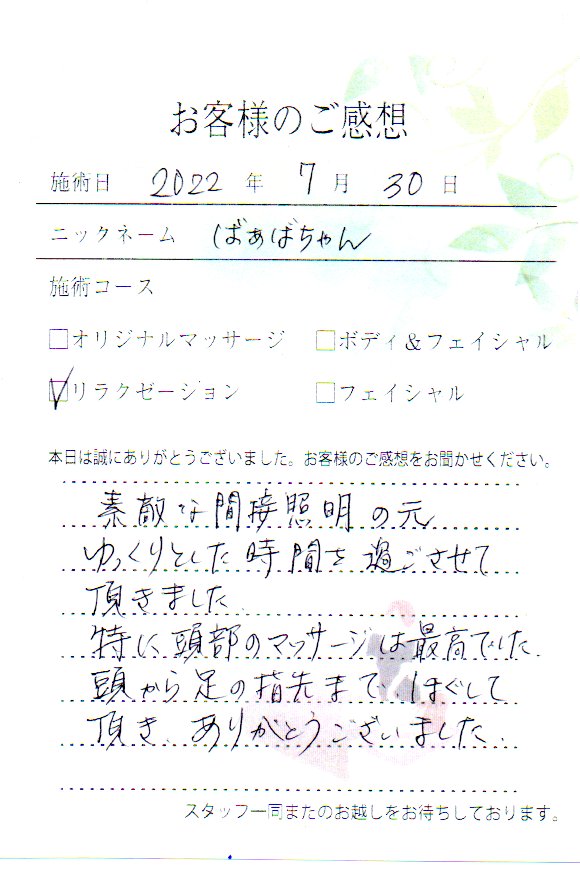 お客様のご感想
施術日 2022 年 7 月 30 日
ニックネーム ばぁばちゃん
施術コース
□オリジナルマッサージ □ボディ&フェイシャル
☑リラクゼーション □フェイシャル
本日は誠にありがとうございました。お客様のご感想をお聞かせください。
素敵な間接照明の元
ゆっくりとした時間を過ごさせて
頂きました
特に頭部のマッサージは最高でした.
頭から足の指先まで ほぐして
頂き、ありがとうございました.
スタッフ一同またのお越しをお待ちしております。